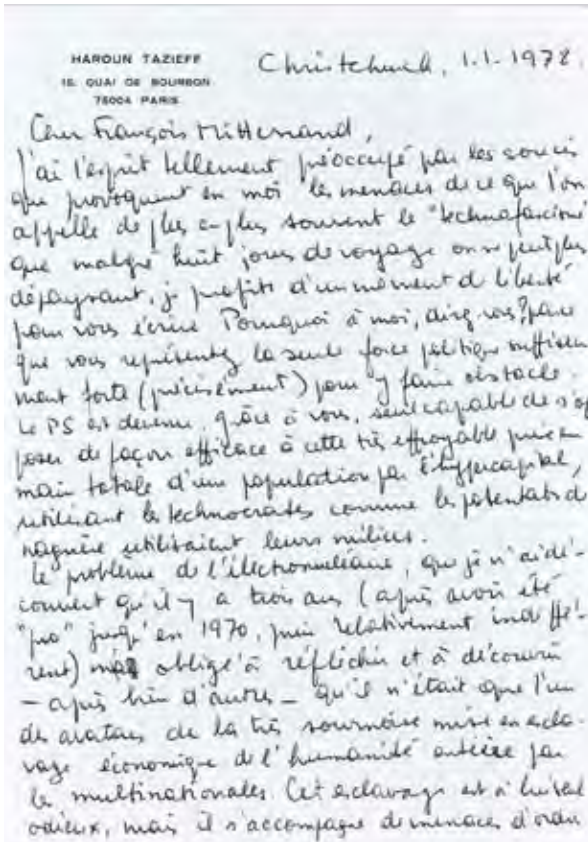 HAROUN TAZIEFF
15, QUAI DE BOURBON
75004 PARIS
Christchurch, 1.1.1978.
Cher François Mitterrand,
J'ai l'esprit tellement préoccupé par les soucis
que provoquent en moi les menaces de ce que l'on
appelle de plus en plus souvent le "technofascisme"
que malgré huit jours de voyage on ne peut plus
dépaysant, je profite d'un moment de liberté
pour vous écrire. Pourquoi à moi, direz-vous? parce
que vous représentez la seule force politique suffisam
ment forte (précisément) pour y faire obstacle.
Le PS est devenu, grâce à vous, seul capable de s'op
poser de façon efficace à cette très effroyable prise en
main totale d'une population par l'hypercapital,
utilisant les technocrates comme les potentats de
naguère utilisaient leurs milices.
Le problème de l'électronucléaire, que je n'ai dé-
couvert qu'il y a trois ans (après avoir été
"pro" jusqu'en 1970, puis relativement indiffé-
rent) m'a obligé à réfléchir et à découvrir
– après bien d'autres – qu'il n'était que l'un
des avatars de la très sournoise mise en escla-
vage économique de l'humanité entière par
les multinationales. Cet esclavage est à lui seul
odieux, mais il s'accompagne de menaces d'ordre